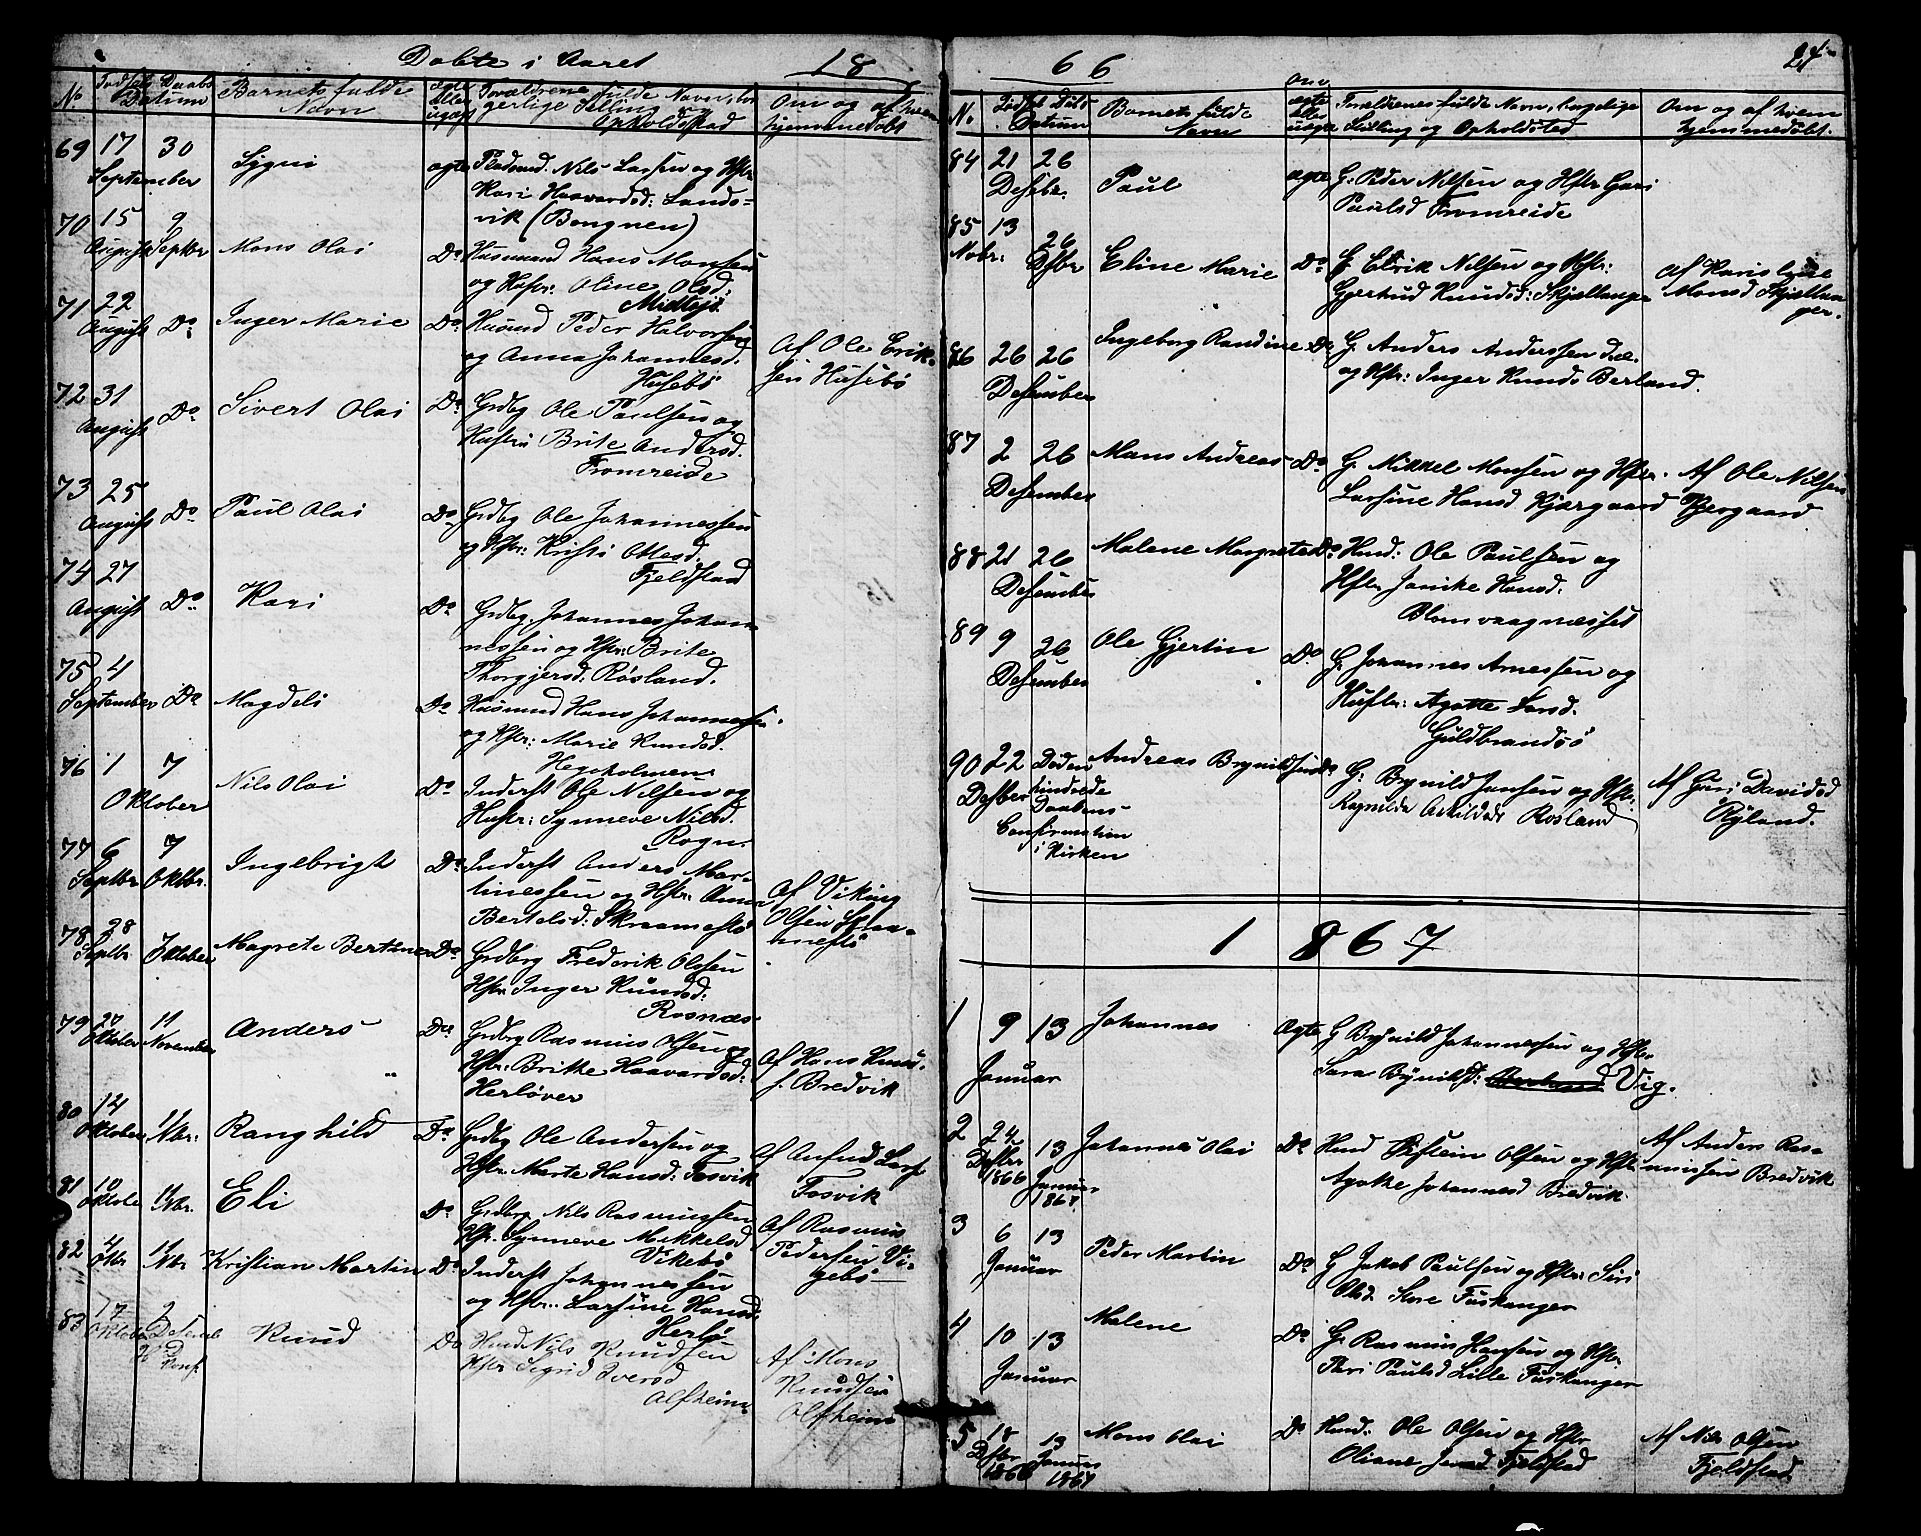 Døbte i Aaret 18
No Fødsels Daabs Datum
Barnets fulde Navn
ægte eller uægte
Forældrenes fulde Navne, borgerlige Stilling og Opholdssted
Om og af hvem hjemmedøbt
69 17 September 30 Sygni ægte Pladsmd. Nils Larsen og Hstr
Kari Haavardsd: Lands=
vik (Bongnen)
70 15 August 9 Septbr Mons Olai Do Husmand Hans Monsen
og Hustr: Oline Olsd:
Midtøjs
71 22 August Do Inger Marie Do Husmd Peder Halvorsen
og Anna Johannesd.
Husebø
Af Ole Erik-
sen Husebø
72 31 August Do Sivert Olai Do Grdbg Ole Paulsen og
Hustru Brite Andersd.
Fromreide
73 25 August Do Paul Olai Do Grdbg Ole Johannessen
og Hstr: Kristi Olesd.
Fjeldstad
74 27 August Do Kari Do Grdbg. Johannes Johan-
nessen og Hstr: Brite
Thorgjersd. Røsland.
75 4 September Do Magdeli Do Husmand Hans Johannessen
og Hstr: Marie Knudsd.
Hegeholmen
76 1 7 Oktober Nils Olai Do Inderst Ole Nilsen og
Hustr: Synneve Nilsd.
Rogn
77 6 Septbr 7 Oktbr. Ingebrigt Do Inderst Anders Mar-
tinessen og Hstr: Anna
Bertelsd: Skraamestø
Af Viking
Olsen Skraa-
mestø
78 28 Septbr 7 Oktober Magrete Bertine Do Grdbrg Frederik Olsen
Hstr Inger Knudsd:
Rosnæs
79 20 Oktober 11 November Anders Do Grdbrg Rasmus Olsen og
Hstr: Britte Haavardsd:
Herløver
Af Hans Knud-
s. Bredvik
80 14 Oktober 11 Nbr: Ranghild Do Grdbg Ole Andersen og
Hstr Marte Hansd: Tosvik
Af Anfind Lars
Tosvik
81 10 Oktober 11 Nbr. Eli Do Grdbrg Nils Rasmussen
Hstr. Synneve Mikkelsd
Vikebø
Af Rasmus
Pedersen Vi-
gebø
82 4 Oktbr 11 Nbr Kristian Martin Do Inderst Johannessen
og Hstr: Larsine Hansd.
Herlø
83 17 Oktober 2 Desemb Knud Do Husmd Nils Knudsen
Hstr Sigrid Iversd
Alfheim
Af Mons
Knudsen
Alfheim
66
24
N. Fødsels Døbs Datum
Barnets fulde Navn
om ægte eller uægte
Forældrenes fulde Navn, borgelige
Stilling og Opholdsted
Om og af hvem
hjemmedøbt.
84 21 26 Desbr. Paul ægte G: Peder Nilsen og Hstr Guri
Paulsd Fromreide
85 13 Nobr: 26 Dsbr Eline Marie Do G. Elrik Nilsen og Hstr:
Gjertrud Knudsd: Skjællanger
Af Karis
Monsd Skjællan-
ger.
86 26 26 Desember Ingeborg Randine Do G. Anders Anderssen
og Hstr: Inger Knuds Berland.
87 2 26 Desember Mans Andreas Do G. Mikkel Monsen og Hstr.
Larsine Hansd Kjærgaard
Af Ole Nilsen
Kjergaard
88 21 26 Desember Malene Margrete Do Husd: Ole Paulsen og
Hstr Janike Hansd.
Blomvaagnæsset
89 9 26 Desember Ole Gjertin Do G. Johannes Arnessen og
Hustr: Agatte Larsd.
Guldbrandsø
90 22 Desber Døden
hindrede
Daabens-
Confirmation
i Kirken
Andreas Brynildsen Do G: Brynild Jansen og Hstr:
Ragnilda Askildsd: Rosland
Af Guri Davidsd
Ryland.
1867
1 9 13 Januar Johannes Ægte G Brynild Johannessen og Hstr
Sara Bryniksd: Vig.
2 24 Desbr 1866 13 Januar 1867 Johannes Olai Do Husd Østein Olsen og Hstr
Agathe Johannesd Bredvik
Af Anders Ras-
mussen Bredvik
3 6 13 Januar Peder Martin Do G Jakob Paulsen og Hstr: Siri
Olsd. Store Fuskanger
4 10 13 Januar Malene Do G. Rasmus Hansen og Hstr
Pari Paulsd Lille Fuskanger
5 18 Desbr 1866 13 Januar 1867 Mons Olai Do Husd. Ole Olsen og Hstr
Oliane Fjeldstad
Af Nils Olsen
Fjeldstad